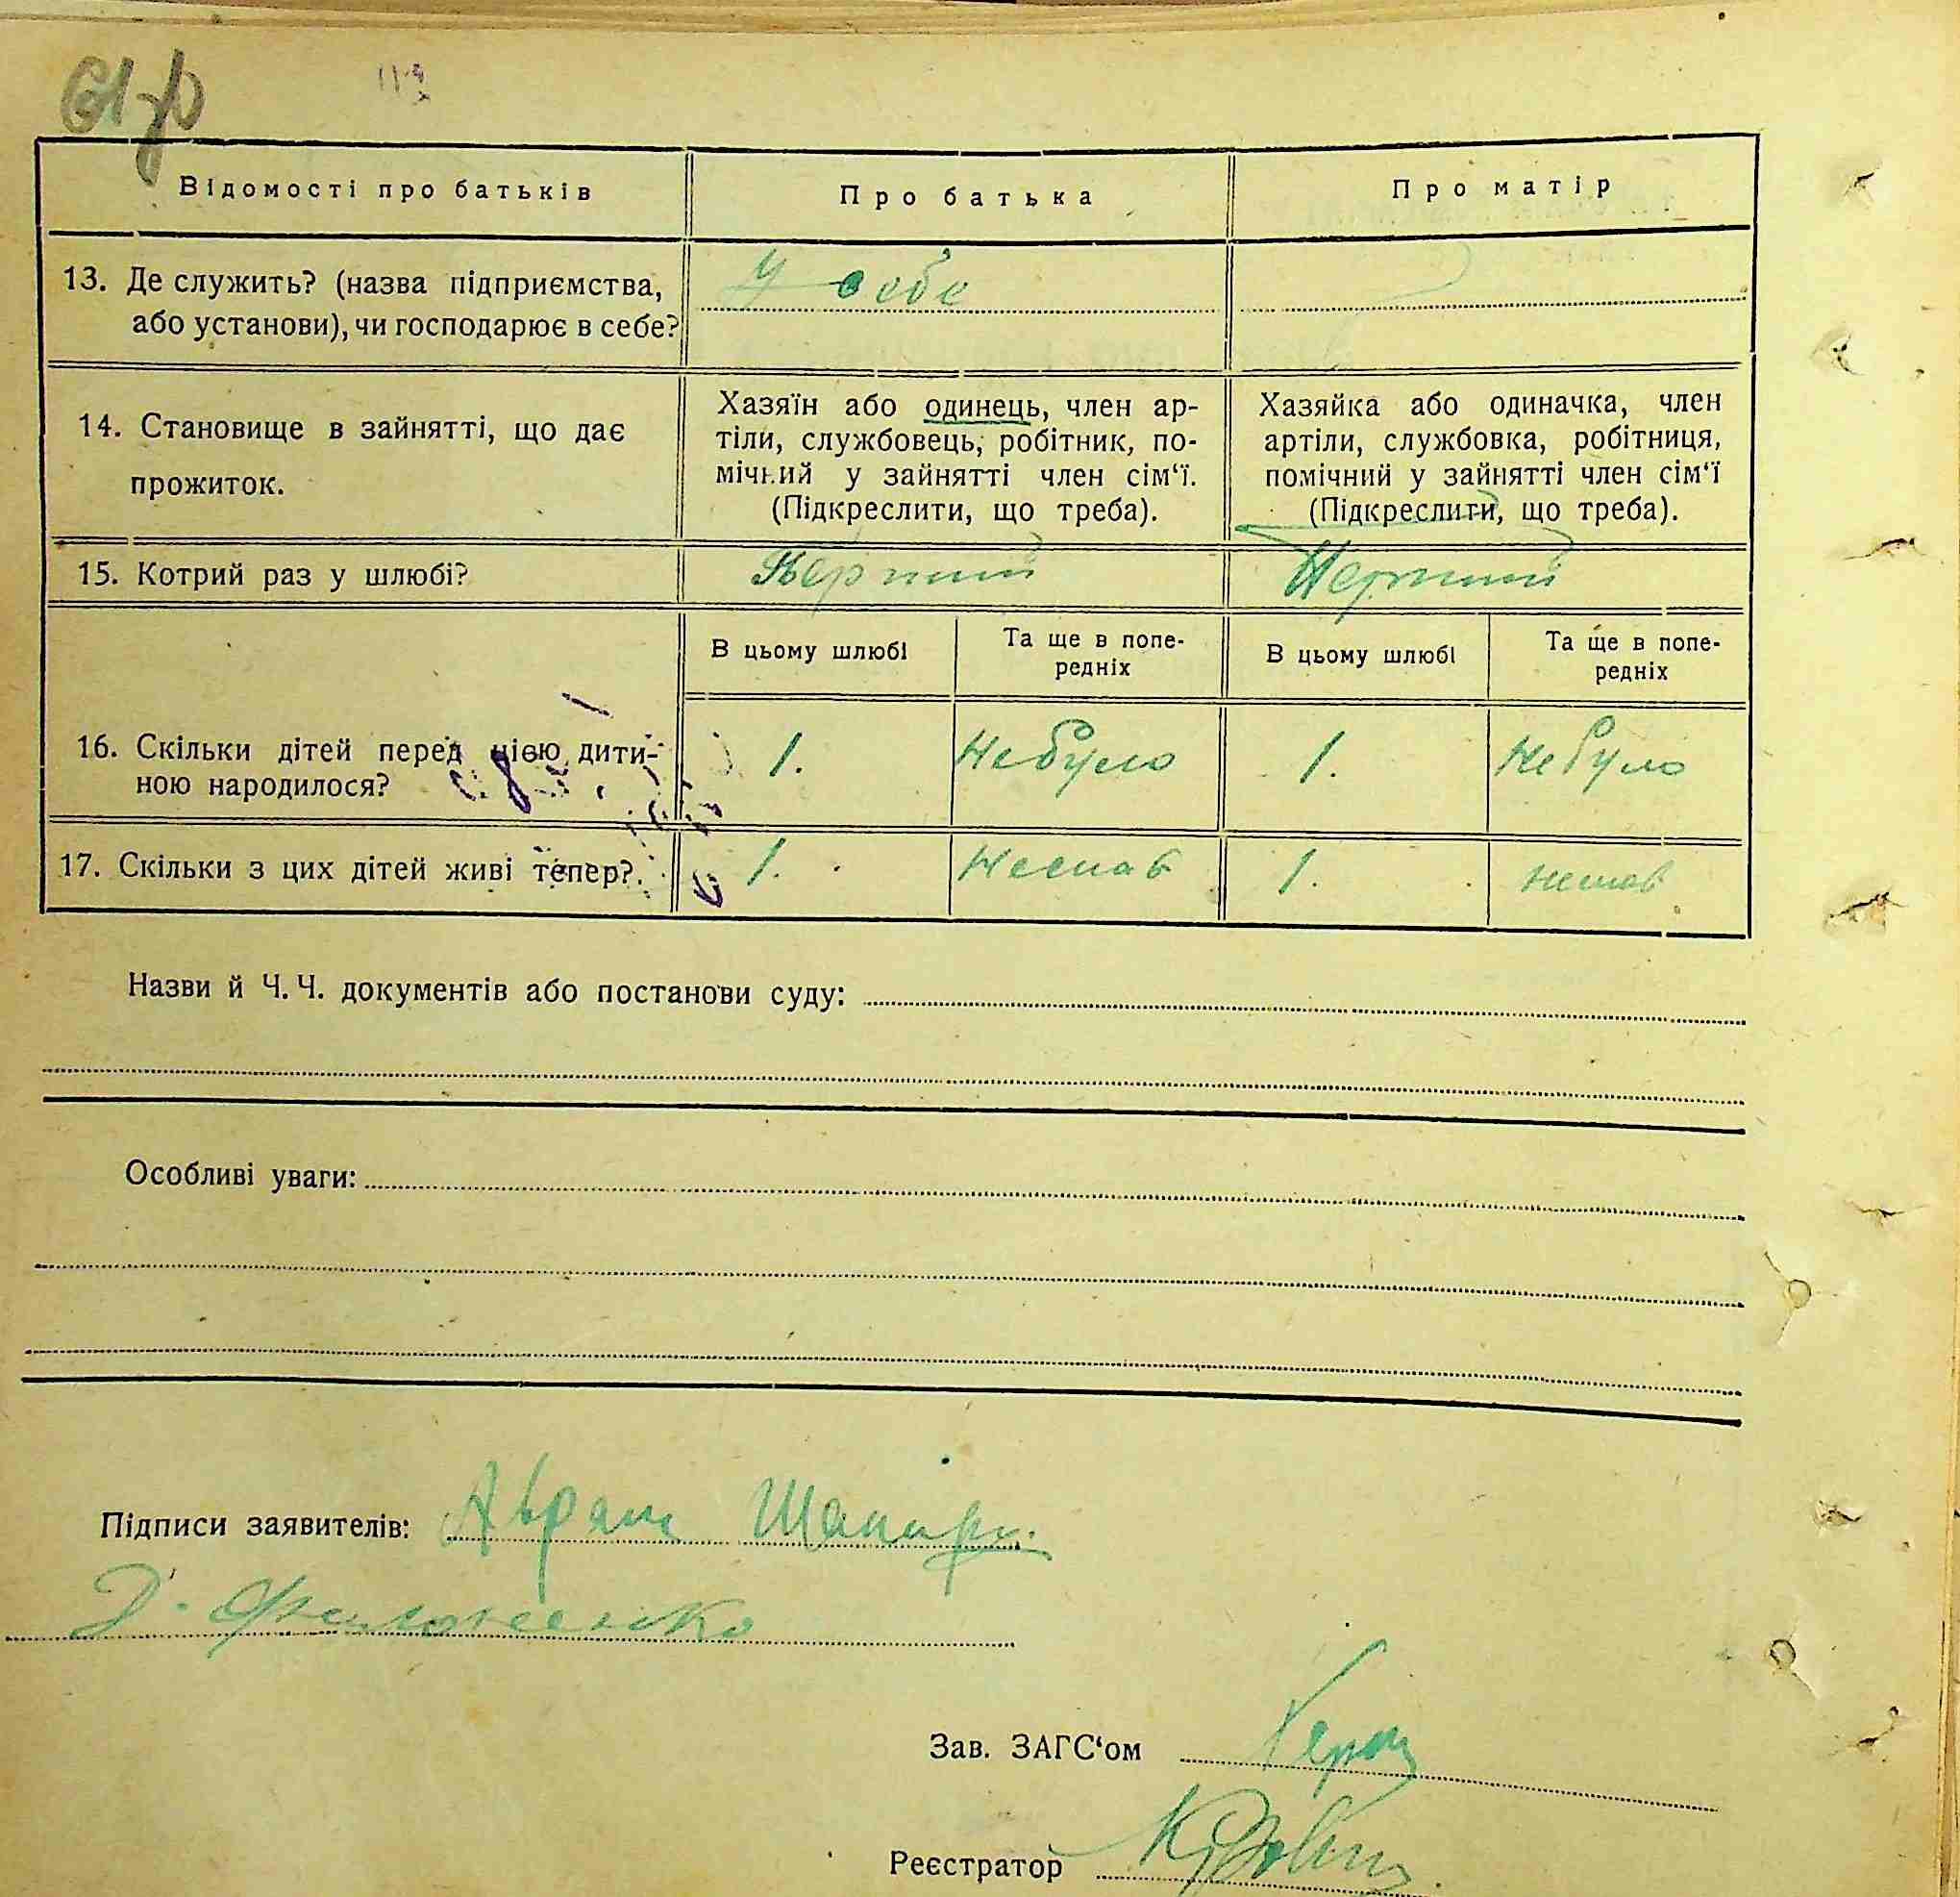 Відомості про батьків
Про батька
Про матір
13. Де служить? (назва підприємства,
або установи), чи господарює в себе?
У себе
14. Становище в зайнятті, що дає
прожиток.
Хазяїн або одинець, член ар-
тіли, службовець, робітник, по-
мічний у зайнятті член сім‘ї.
(Підкреслити, що треба).
Хазяйка або одиначка, член
артіли, службовка, робітниця,
помічний у зайнятті член сім‘ї
(Підкреслити, що треба).
15. Котрий раз у шлюбі?
Перший
Перший
В цьому шлюбі
Та ще в попе-
редніх
В цьому шлюбі
Та ще в попе-
редніх
16. Скільки дітей перед цією дити-
ною народилося?
1.
Небуло
1.
Небуло
17. Скільки з цих дітей живі тепер?
1.
1.
Назви й Ч. Ч. документів або постанови суду:
Особливі уваги:
Підписи заявителів:
Абрам
Зав. ЗАГС‘ом
Реєстратор